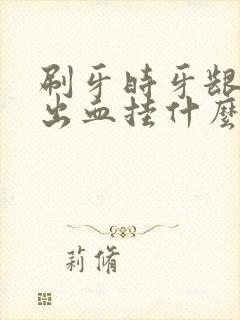 刷牙時牙龈
出血挂什麼
莉脩